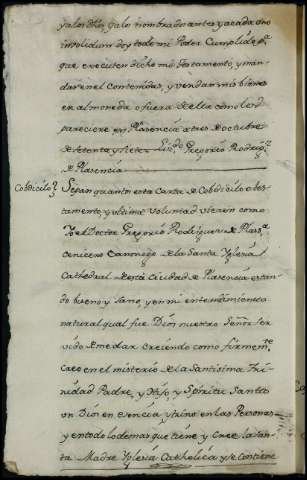 yalos dhos, ya los nombrados antes yacada uno
insolidum doy todo mi Poder Cumplido pa
que executen dicho mi testamento, y man-
das en el contenidas, y vendan mis bienes
en al moneda o fuera de ella como les
pareciere en Plasencia a tres de octubre
de setenta y siete = Lizdo Gregorio Rodrigz
de Plasencia
Cobdicilo Sepan quantos esta Carta de Cobdicilo o tes-
tamento, y ultima voluntad vieren como
Yo el Doctor Gregorio Rodriguez de Plasa
Cenicero Canonigo de la Santa Yglesia
Cathedral de esta Ciudad de Plasencia estan-
do bueno y sano, y en mi entendimiento
natural qual fue Dios nuestro Señor ser
vido de me dar creciendo como firmemte
creo en el misterio de la Santisima Tri-
nidad Padre, y Hijo y Spiritu Santo
un Dios en esencia y trino en las Personas
y en todo lo demas que tiene y Cree la San-
ta Madre Yglesia Catholica y se Contiene